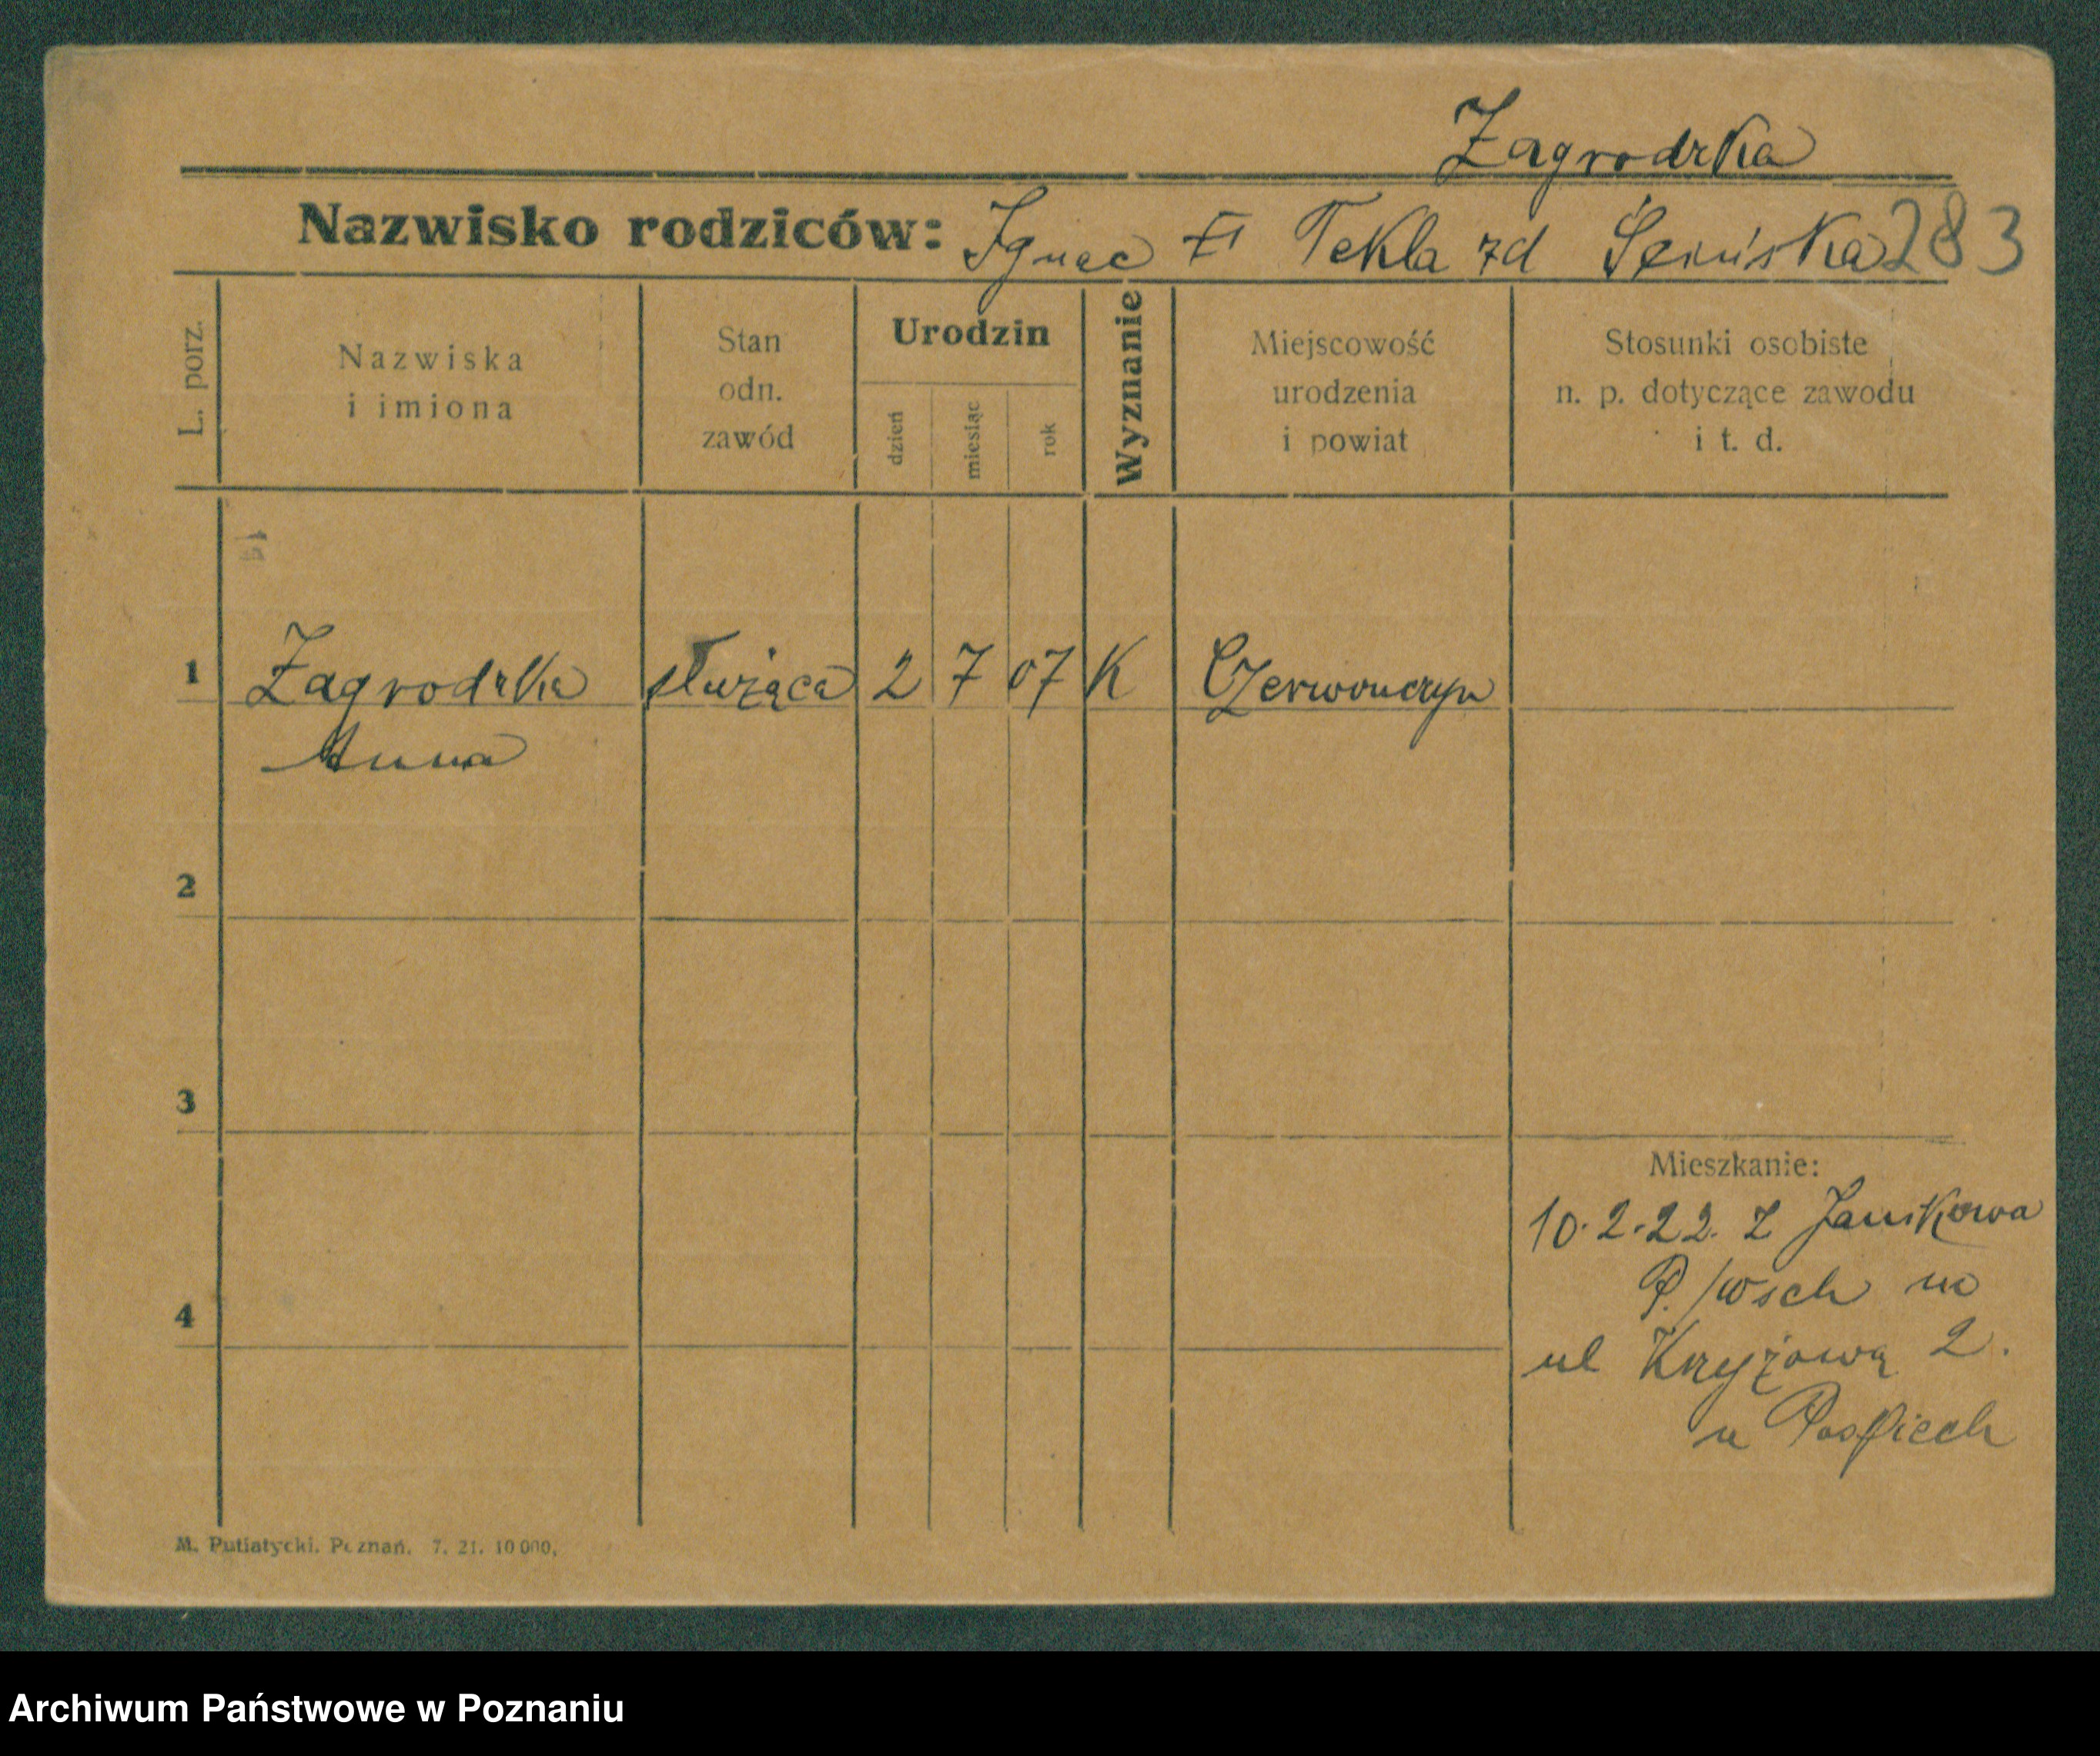 Zagrodzka
Nazwisko rodziców: Ignac i Tekla zd 283
L. porz.
Nazwiska
i imiona
Stan
odn.
zawód
Urodzin
dzień
miesiąc
rok
Wyznanie
Miejscowość
urodzenia
i powiat
Stosunki osobiste
n. p. dotyczące zawodu
i t. d.
1 Zagrodzka służąca 2 7 07 K Czerwonczyn
Anna
2
3
4
Mieszkanie:
10.2.22. z Janikowa
P./wsch na
ul Krzyżową 2.
u Pospiech
M. Putiatycki. Poznań. 7. 21. 10 000,
Archiwum Państwowe w Poznaniu